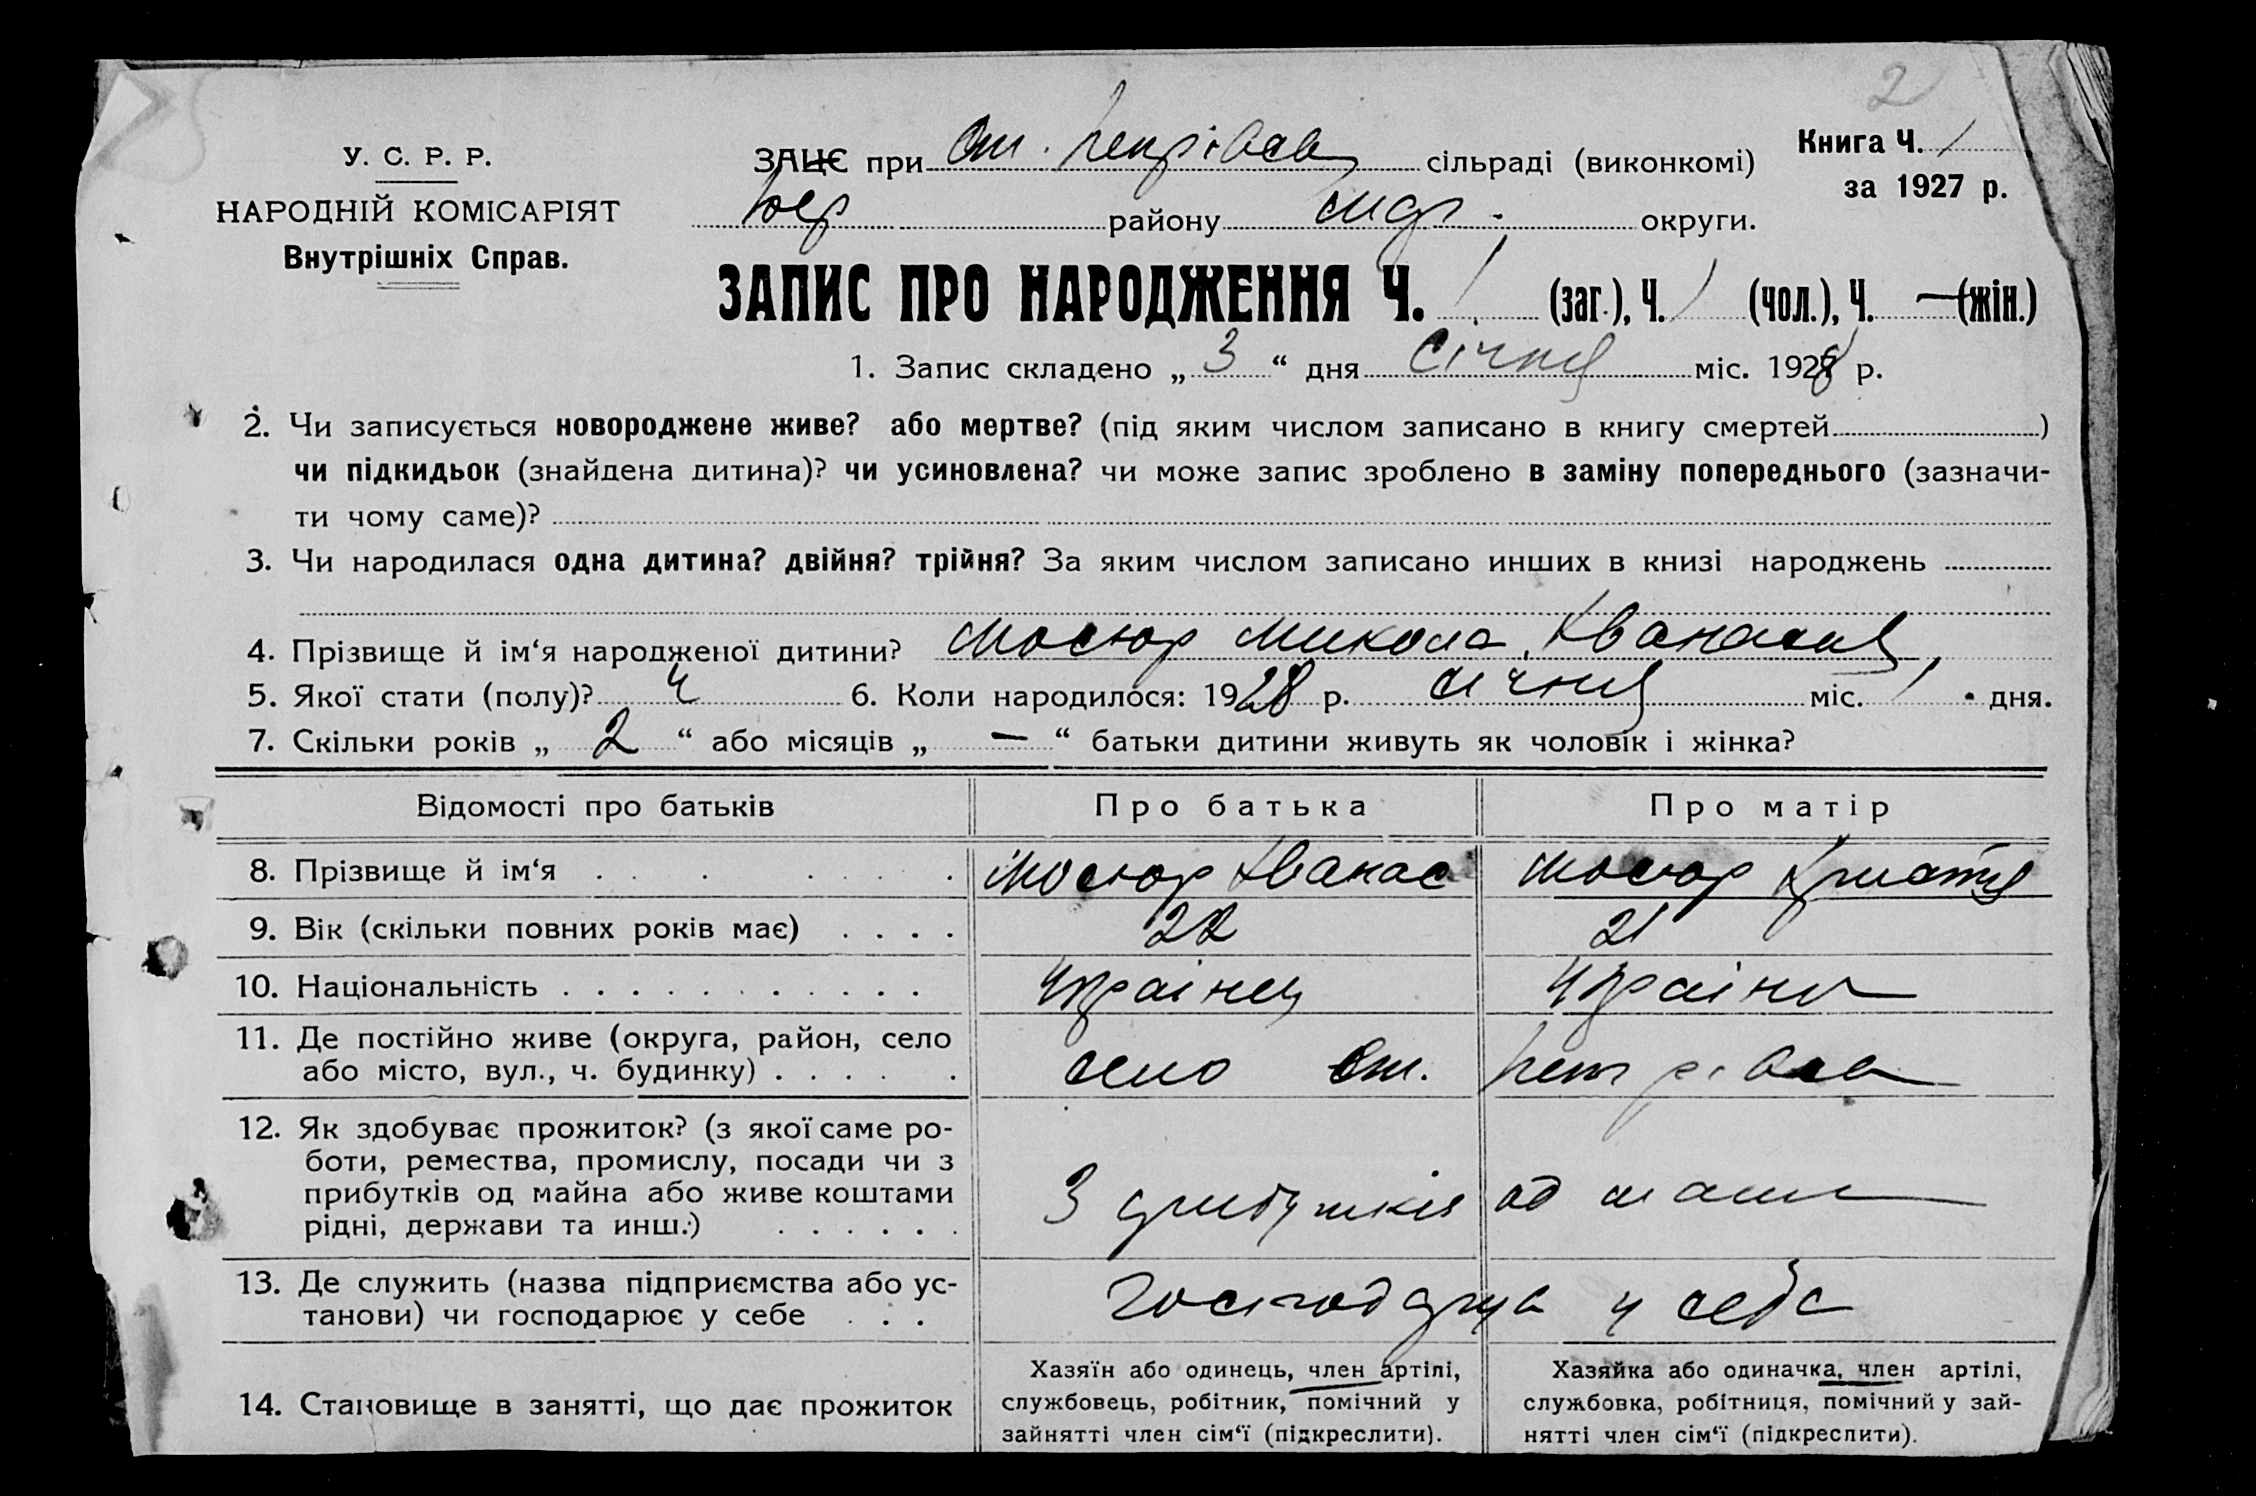 2
У. С. Р. Р.
НАРОДНІЙ КОМІСАРІЯТ
Внутрішніх Справ.
ЗАЦЄ при Ст. Петрівськ сільраді (виконкомі)
Книга Ч. 1
за 1927 р.
району округи.
ЗАПИС ПРО НАРОДЖЕННЯ Ч. 1 (заг.), Ч. 1 (чол.), Ч. — (жін.)
1. Запис складено „ 3 “ дня Січня міс. 1928 р.
2. Чи записується новороджене живе? або мертве? (під яким числом записано в книгу смертей )
чи підкидьок (знайдена дитина)? чи усиновлена? чи може запис зроблено в заміну попереднього (зазначи-
ти чому саме)?
3. Чи народилася одна дитина? двійня? трійня? За яким числом записано инших в книзі народжень
4. Прізвище й ім‘я народженої дитини? Мосюр Микола
5. Якої стати (полу)? ч 6. Коли народилося: 1928 р. січня міс. 1 дня.
7. Скільки років „ 2 “ або місяців „ — “ батьки дитини живуть як чоловік і жінка?
Відомості про батьків Про батька Про матір
8. Прізвище й ім‘я Мосюр Мосюр
9. Вік (скільки повних років має) 22 21
10. Національність Українец Україн
11. Де постійно живе (округа, район, село
або місто, вул., ч. будинку) село Ст. Петрівка
12. Як здобуває прожиток? (з якої саме ро-
боти, ремества, промислу, посади чи з
прибутків од майна або живе коштами
рідні, держави та инш.) З прибутків од майн
13. Де служить (назва підприємства або ус-
танови) чи господарює у себе Господарює у себе
14. Становище в занятті, що дає прожиток
Хазяїн або одинець, член артілі,
службовець, робітник, помічний у
зайнятті член сім‘ї (підкреслити).
Хазяйка або одиначка, член артілі,
службовка, робітниця, помічний у зай-
нятті член сім‘ї (підкреслити).